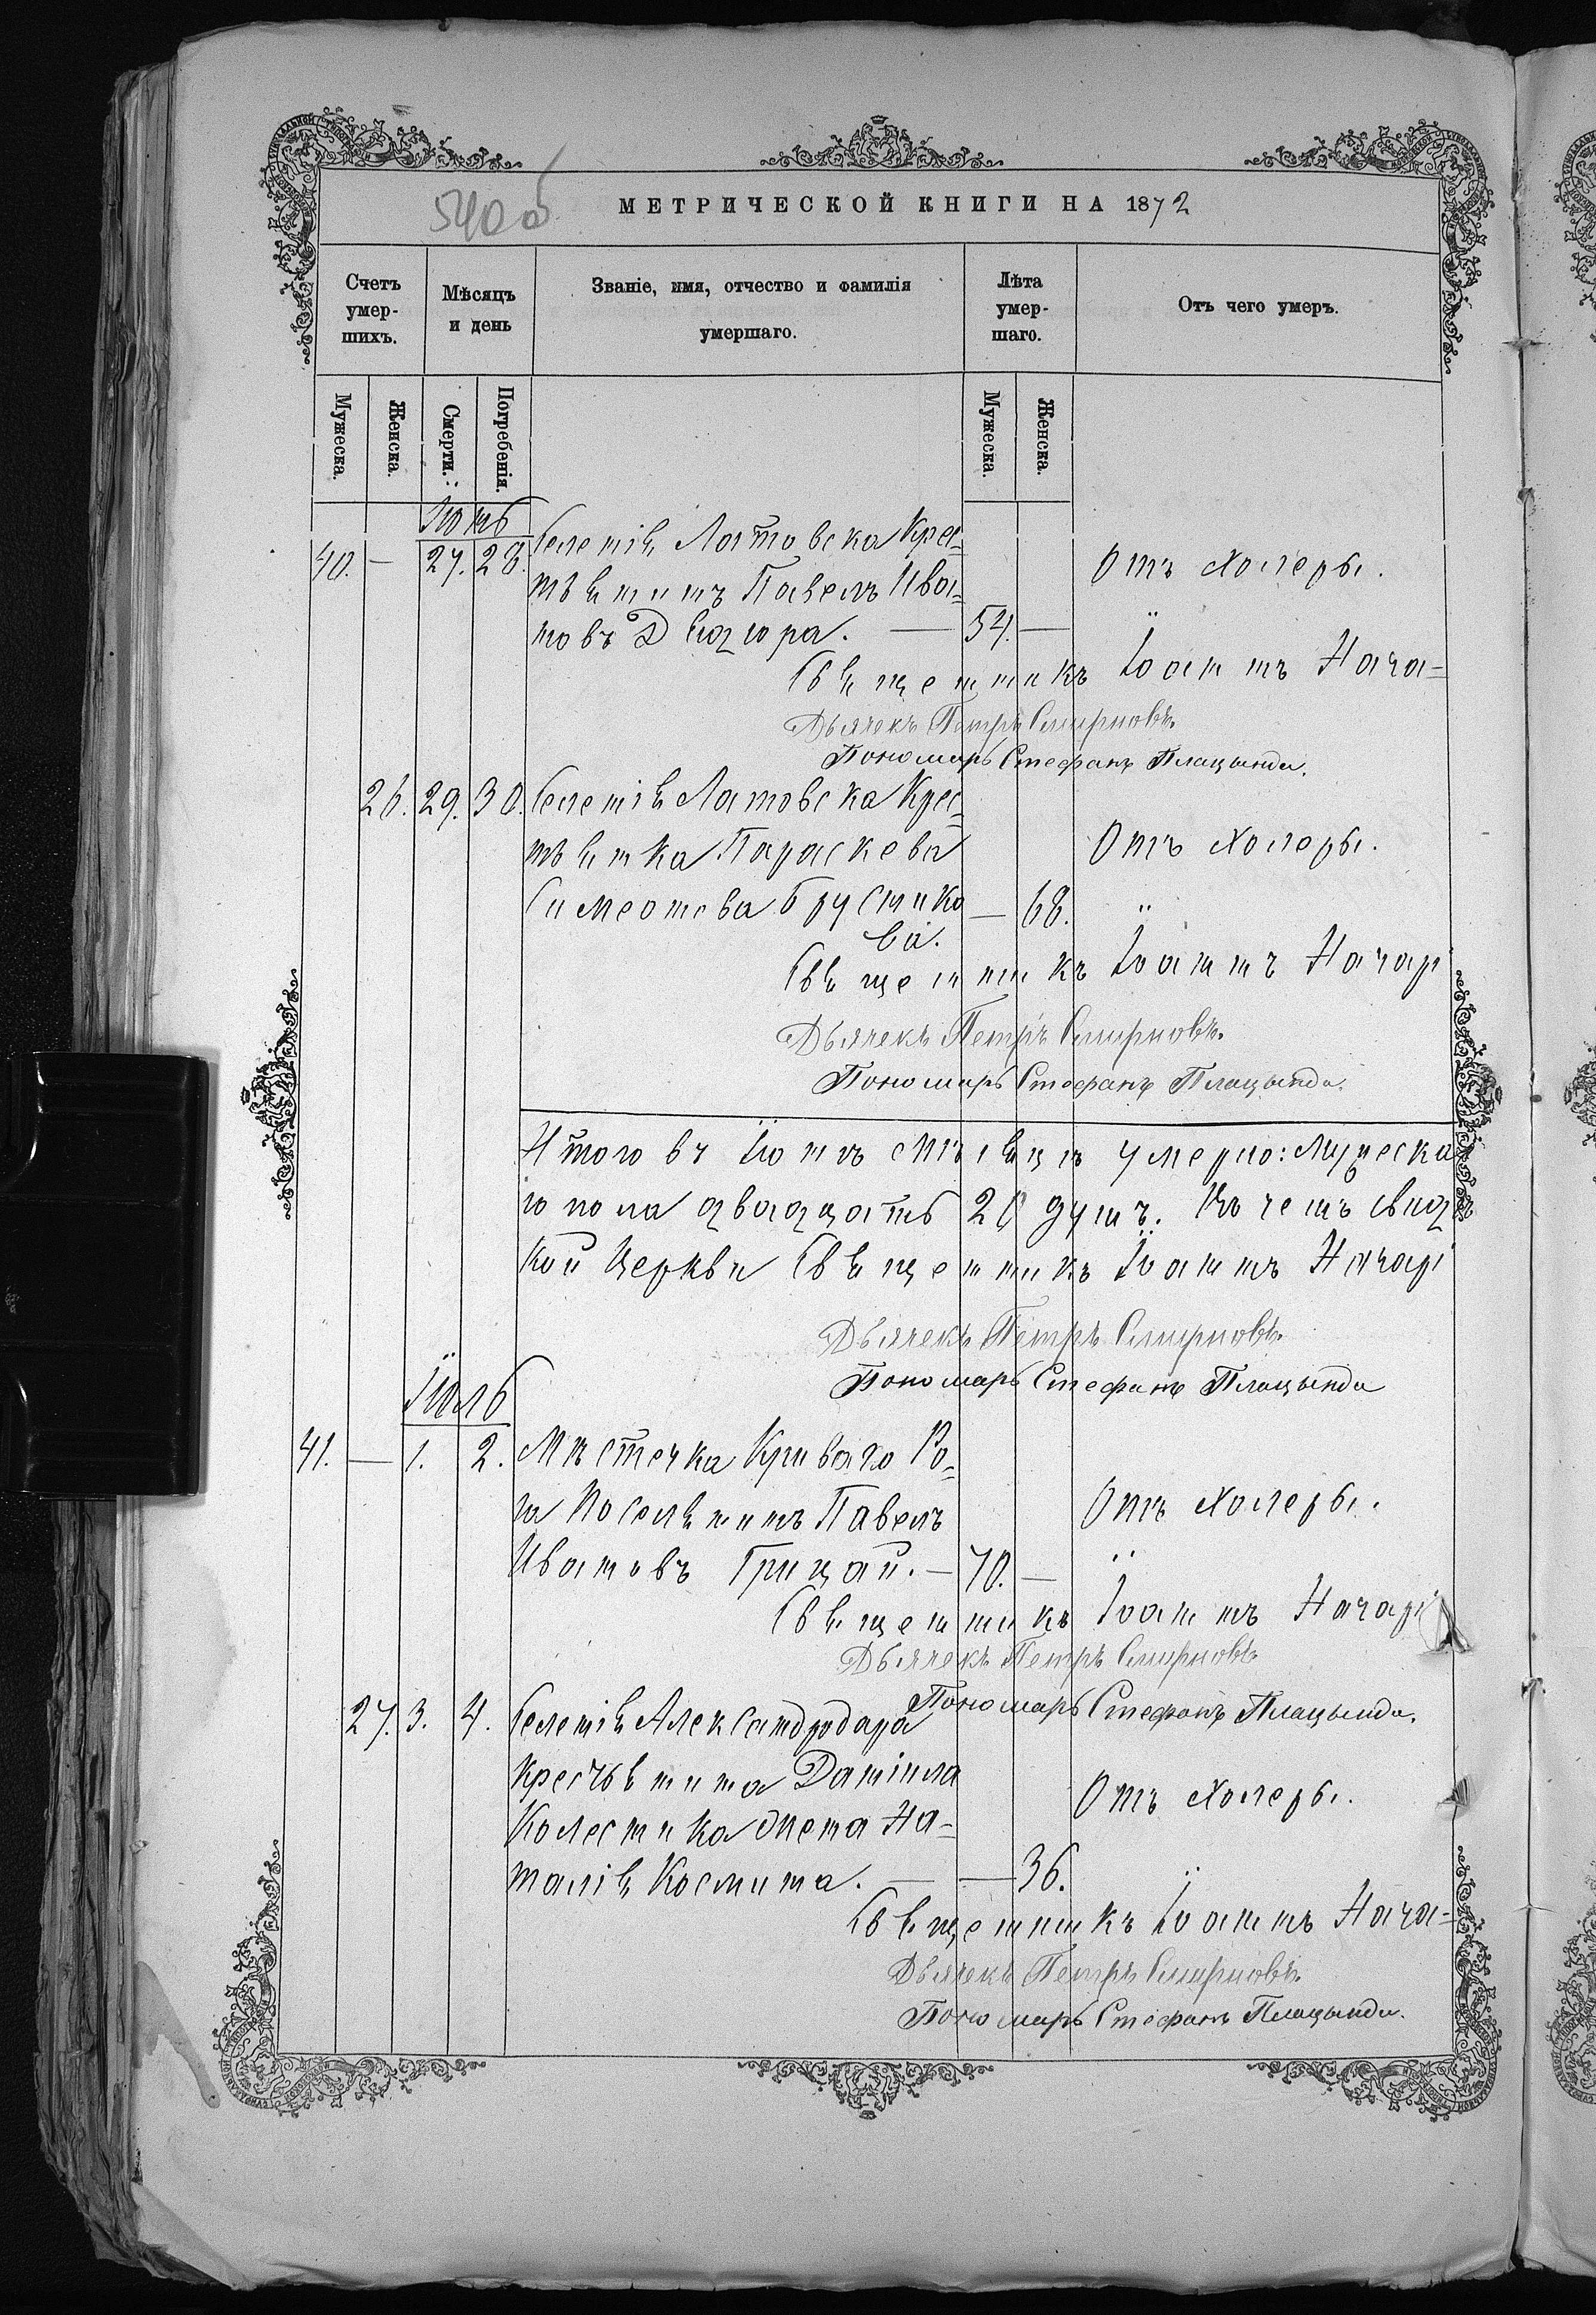 540об
МЕТРИЧЕСКОЙ КНИГИ НА 1872
Счетъ умер-шихъ.
Мѣсяцъ и день
Званіе, имя, отчество и фамилія
умершаго.
Лѣта умер-шаго.
Отъ чего умеръ.
Мужеска.
Женска.
Смерти.
Погребенія.
Мужеска.
Женска.
Іюнь
40. — 27. 28. Селенія Латовска Крес-
тьянинъ Павелъ Ива-
новъ — 54. — Отъ холеры.
Священникъ Іоаннъ Нача-
Дьячекъ Петръ Смирновъ.
Пономарь Стефанъ Плацында.
26. 29. 30. Селенія Латовска Крес-
тьянка Параскева
Симеонова Брусникo
ва. — 68. Отъ холеры.
Священникъ Іоаннъ Начар
Дьячекъ Петръ Смирновъ.
Пономарь Стефанъ Плацында.
Итого въ Іюнѣ мѣсяцѣ умерло: Мужеска
го пола двадцать душъ. Въ чемъ свид
кой Церкви Священникъ Іоаннъ Начар
Дьячекъ Петръ Смирновъ.
Пономарь Стефанъ Плацында
Іюль
41. — 1. 2. Мѣстечка Криваго Ро-
га Поселянинъ Павелъ
Ивановъ Грицай. — 70. — Отъ холеры.
Священникъ Іоаннъ Начар
Дьячекъ Петръ Смирновъ
Пономарь Стефанъ Плацында.
27. 3. 4. Селенія Александродара
крестьянина Даніила
Колесника жена На-
талія Космина. — — 36. Отъ холеры.
Священникъ Іоаннъ Нача-
Дьячекъ Петръ Смирновъ.
Пономарь Стефанъ Плацында.